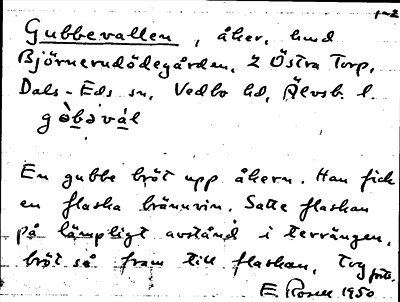 Gubbevallen, åker, hmd
Björnerudödegården, 2 Östra Torp,
Dals-Eds sn, Vedbo hd, Älvsb. l.
gòb̲əvál
En gubbe bröt upp åkern. Han fick
en flaska brännvin. Satte flaskan
på lämpligt avstånd i terrängen,
bröt så fram till flaskan, Tog
E. Rosell 1950